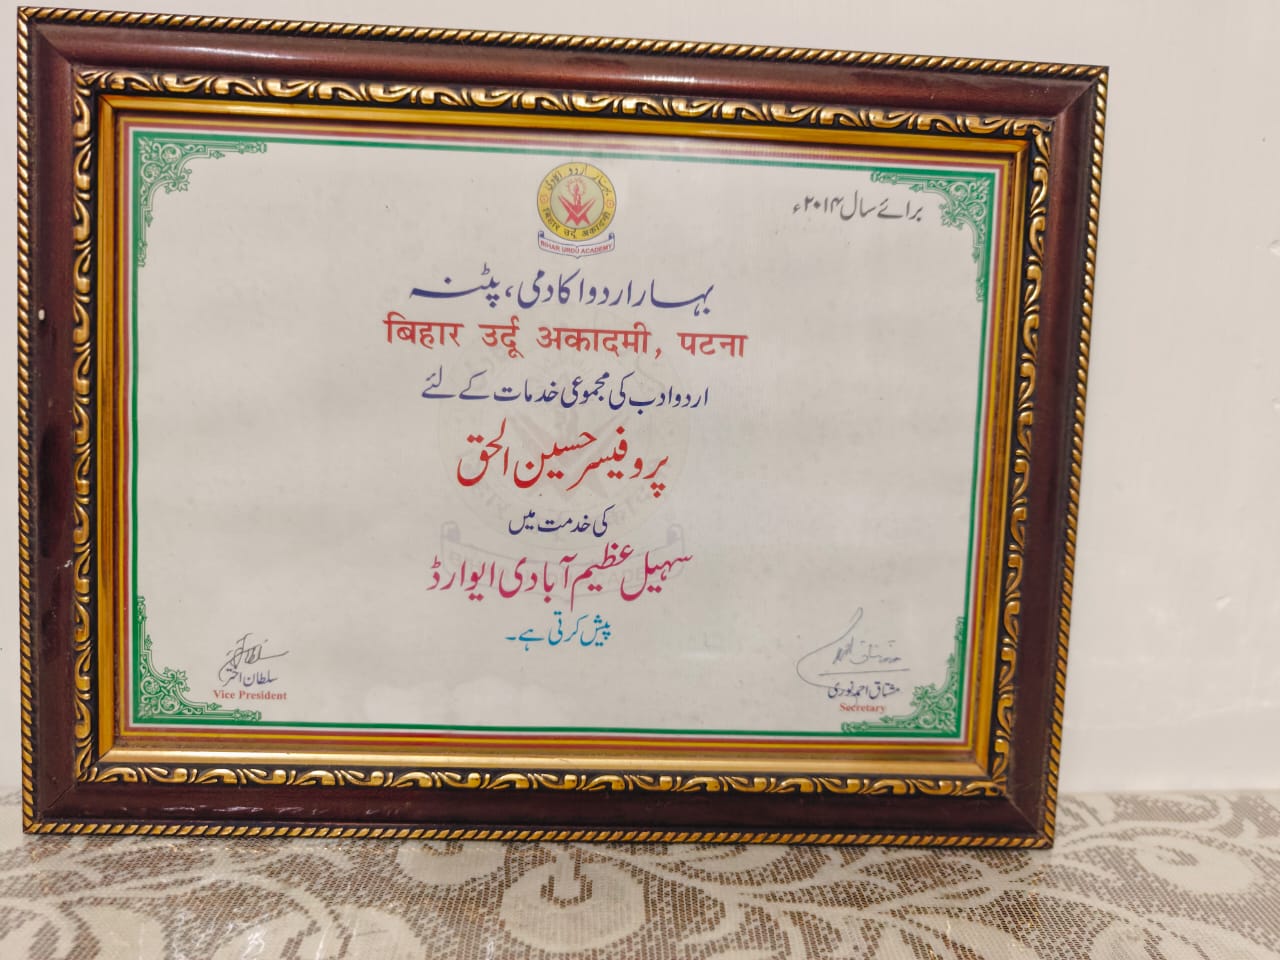 برائے سال ۲۰۱۴ء
بہار اردو اکادمی
बिहार उर्दू अकादमी
BIHAR URDU ACADEMY
بہار اردو اکادمی، پٹنہ
बिहार उर्दू अकादमी, पटना
اردو ادب کی مجموعی خدمات کے لئے
پروفیسر حسین الحق
کی خدمت میں
سہیل عظیم آبادی ایوارڈ
پیش کرتی ہے۔
مشتاق احمد نوری
Secretary
سلطان اختر
Vice President